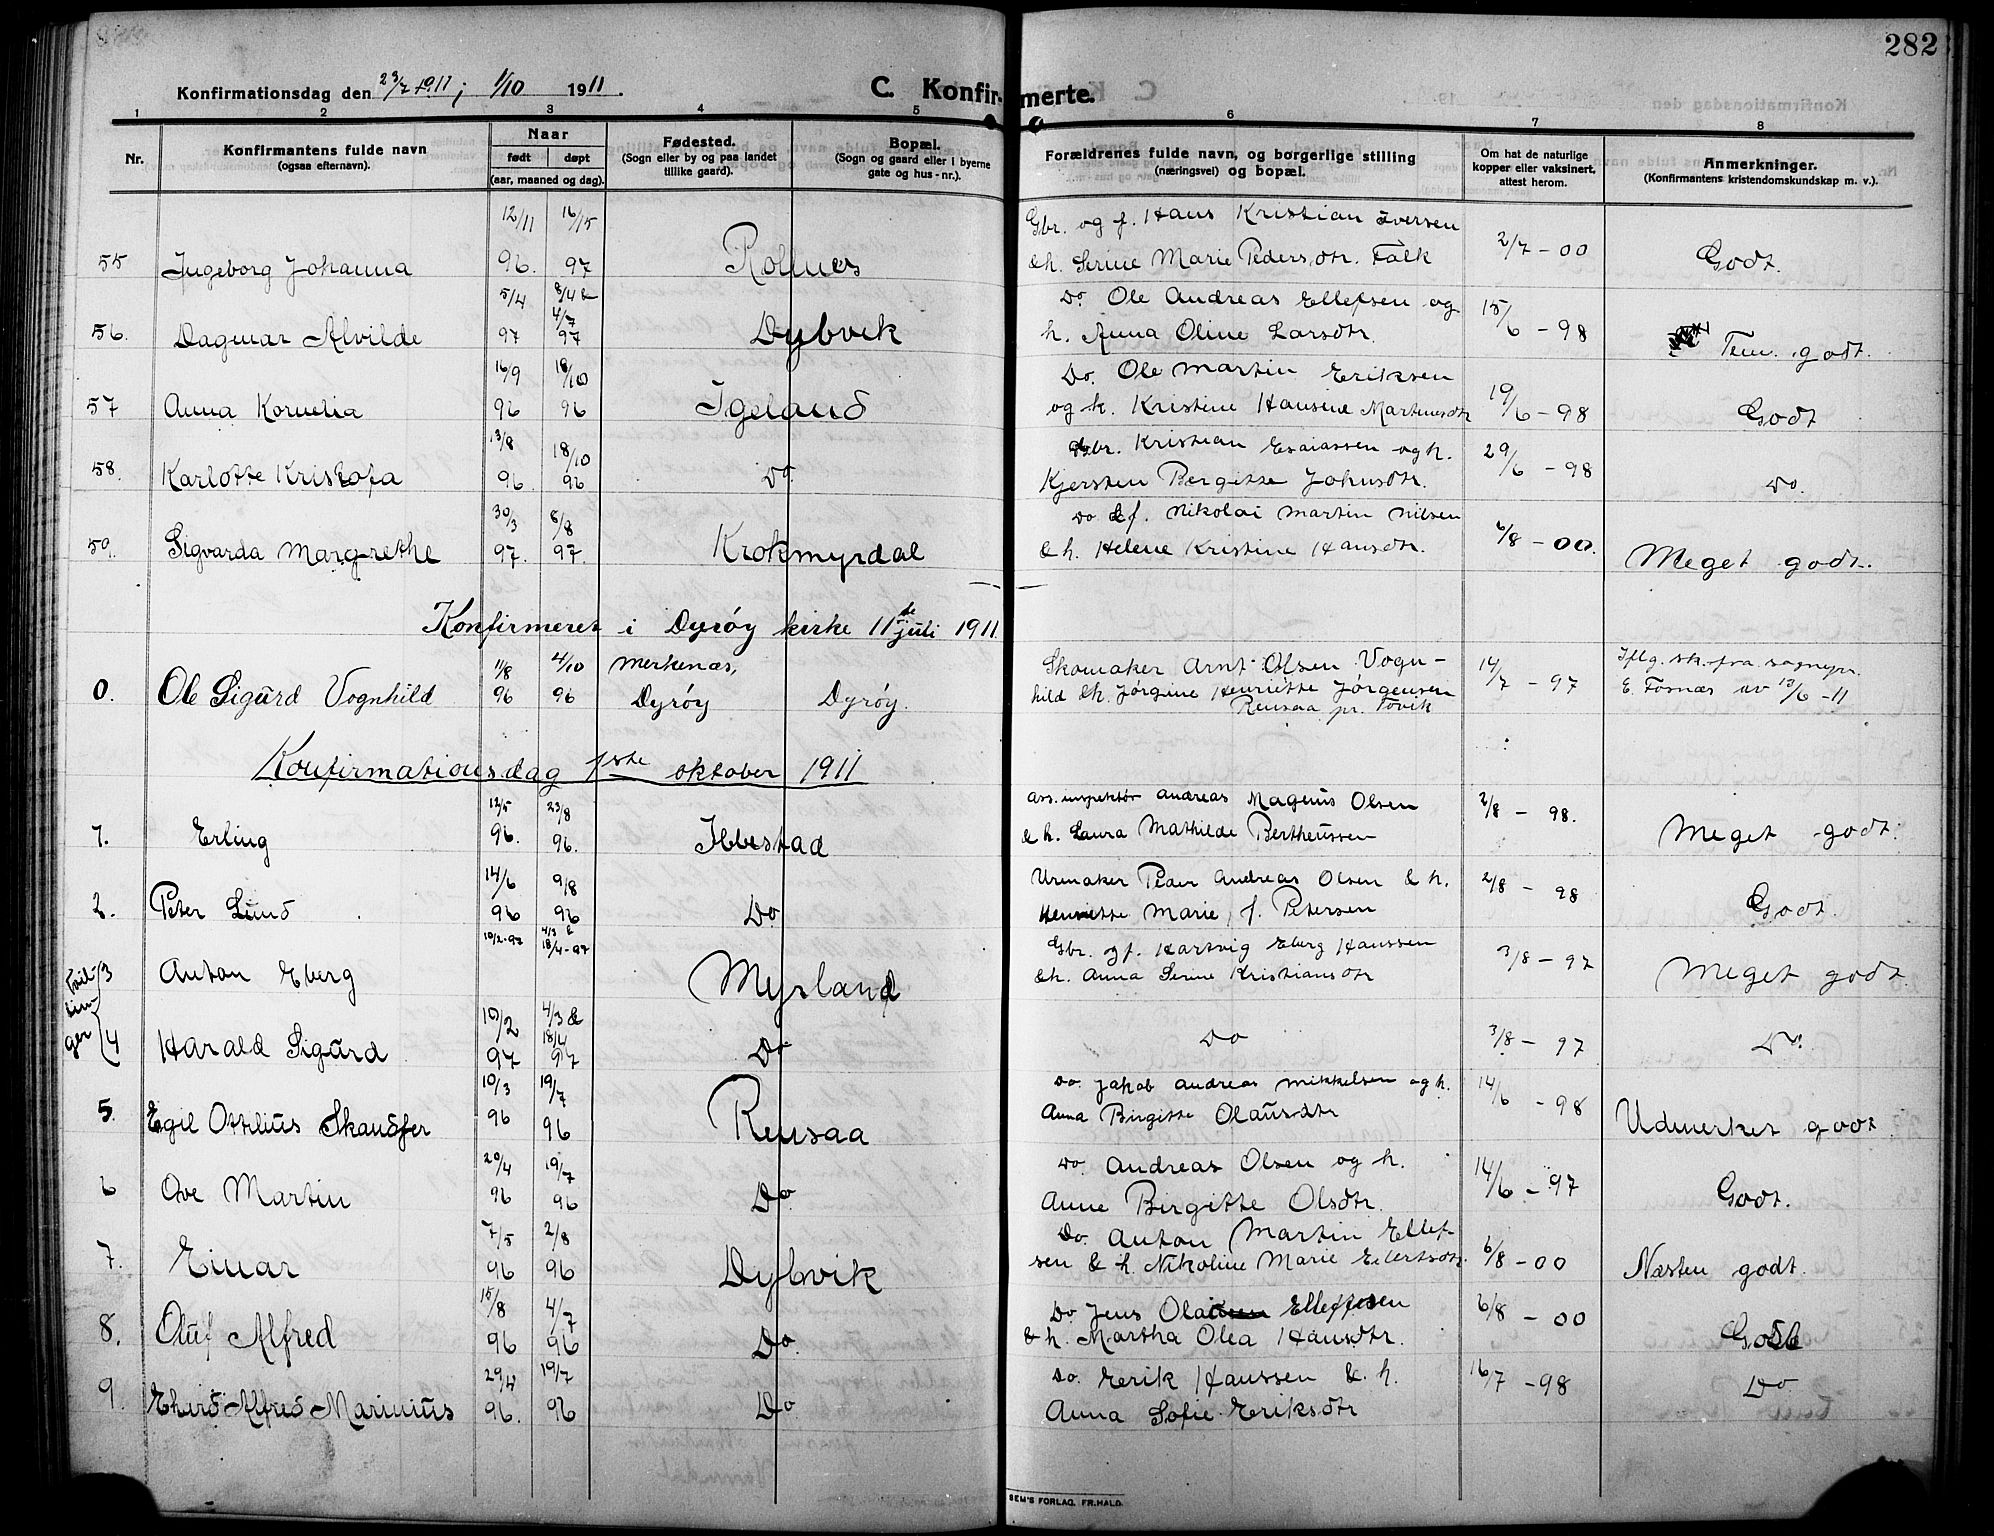 282
Konfirmationsdag den 23/7 1911; 1/10 1911.
C. Konfirmerte.
1 2 3 4 5 6 7 8
Nr.
Konfirmantens fulde navn
(ogsaa efternavn).
Naar
født døpt
(aar, maaned og dag).
Fødested.
(Sogn eller by og paa landet
tillike gaard).
Bopæl.
(Sogn og gaard eller i byerne
gate og hus-nr.).
Forældrenes fulde navn, og borgerlige stilling
(næringsvei) og bopæl.
Om hat de naturlige
kopper eller vaksinert,
attest herom.
Anmerkninger.
(Konfirmantens kristendomskundskap m. v.).
12/11 16/15 Gbr. og f. Hans Kristian Iversen
55 Ingeborg Johanna 96. 97 Rolnes &h. Serine Marie Pedersdtr. Falk 2/7 - 00 Godt.
5/4 8/4 & 4/7 Do. Ole Andreas Ellefsen og
56. Dagmar Alvilde 97 97 Dybvik h. Anna Oline Larsdtr. 15/6 - 98 Tem. godt.
16/9 18/10 Do. Ole Martin Eriksen
57 Anna Kornelia 96 96 Igeland og h. Kristine Hansine Martinusdtr 19/6 - 98 Godt
13/8 18/10 Gbr. Kristian Esaiassen og h.
58. Karlotte Kristofa 96. 96 Do. Kjersten Bergitte Johnsdtr. 29/6 - 98 Do.
30/3 8/8 Do & f. Nikolai Martin Nilsen
59. Sigvarda Margrethe 97. 97. Krokmyrdal & h. Helene Kristine Hansdtr. 6/8 - 00. Meget godt.
Konfirmeret i Dyrøy kirke 11te juli 1911.
11/8 4/10 Merkenæs, Skomaker Arnt Olsen Vogn- Iflg. sk. fra sognepr.
0. Ole Sigurd Vognhild 96 96 Dyrøy Dyrøy. hild &h. Jørgine Henriette Jørgensen 14/7 - 97 E. Fosnæs av 13/6 - 11
Rensaa pr. Tovik
Konfirmationsdag 1ste oktober 1911
12/5 23/8 Ass. inspektør Andreas Magnus Olsen
1. Erling 96. 96. Ibbestad & h. Laura Mathilde Bertheussen 2/8 - 98. Meget godt.
14/6 9/8 Urmaker Peder Andreas Olsen & h.
2. Peter Lund 96 96 Do Henriette Marie, f. Petersen 2/8 - 98 Godt.
10/2-97 4/3 & 18/4-97 Gbr. og f. Hartvig Eberg Hanssen
Tvil-
lin-
ger
3 Anton Eberg Myrland &h. Anna Serine Kristiansdtr 3/8 - 97 Meget godt.
10/2 4/3 & 18/4
4 Harald Sigurd 97 97 Do Do 3/8 - 97 Do.
10/3 19/7 Do. Jakob Andreas Mikkelsen og h.
5. Egil Ottilius Skandfer 96 96 Rensaa Anna Birgitte Olausdtr 14/6 - 98 Udmerket godt.
20/4 19/7 Do. Andreas Olsen og h.
6 Ove Martin 96 96 Do. Anne Birgitte Olsdtr. 14/6 - 97 Godt.
7/5 2/8 Do. Anton Martin Ellef-
7. Einar 96 96 Dybvik sen & h. Nikoline Marie Eilertsdtr. 6/8 - 00 Næsten godt.
15/8 4/7 Do Jens Ellefsen
8. Oluf Alfred 96 96 Do. & h. Martha Olea Hansdtr. 6/8 - 00 Godt
29/4 19/7 Do. Erik Hanssen & h.
9. Alfred Marinius 96. 96 Do Anna Sofie Eriksdtr 16/7 - 98 Do.
SEM'S FORLAG. FR.HALD.